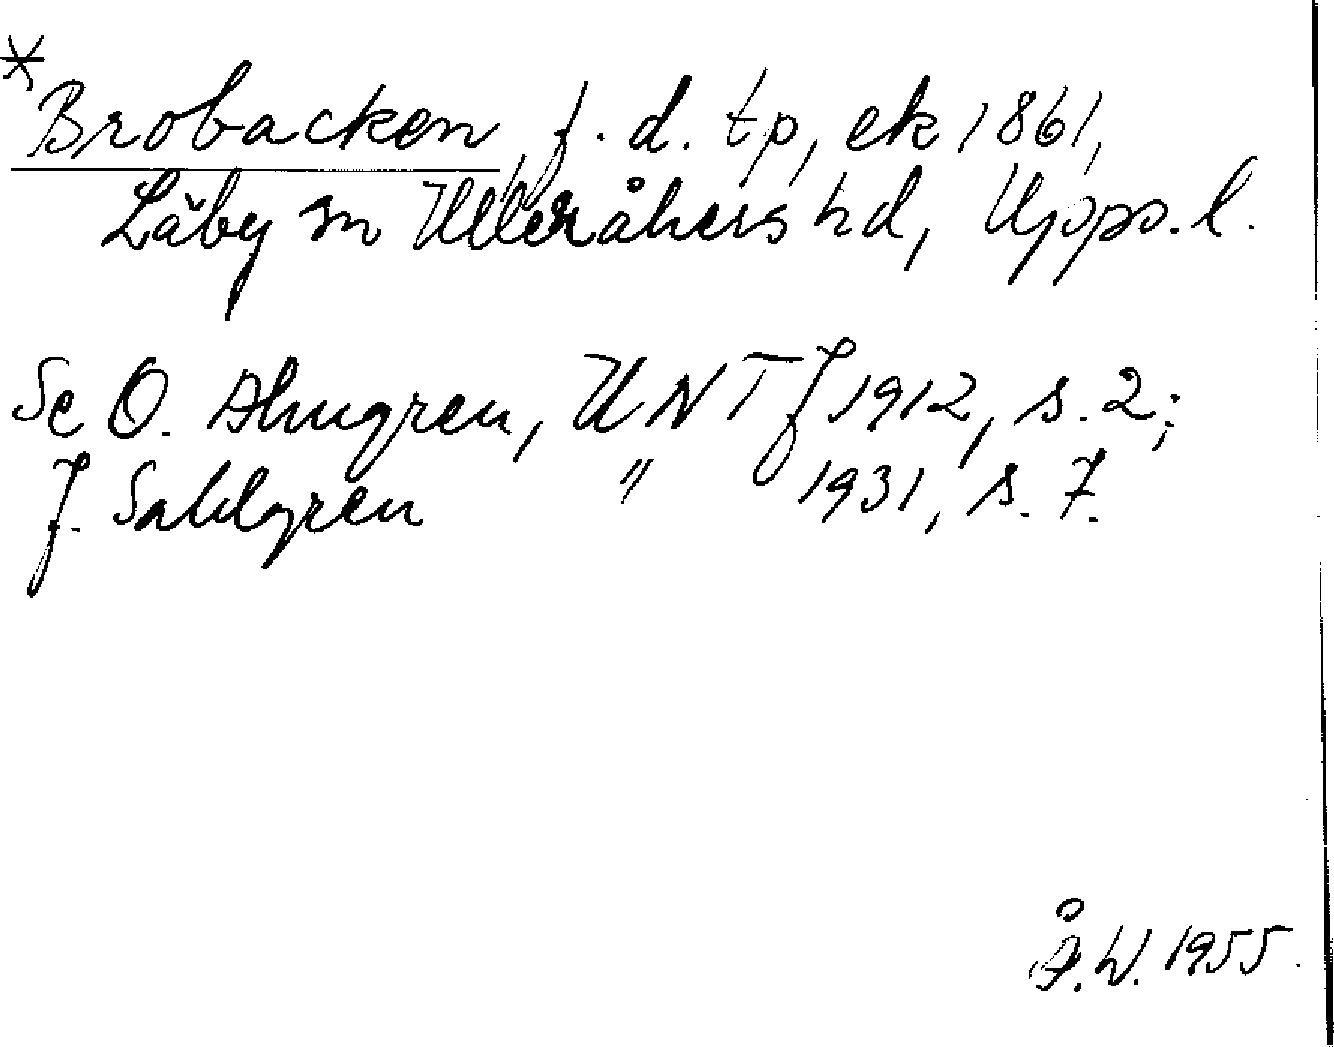 * Brobacken, f. d. tp, ek 1861,
Läby sn Ulleråkers hd, Upps. l.
Se O. Almgren, UNT J 1912, s. 2;
J. Sahlgren " 1931, s. 7.
Å. W. 1955.